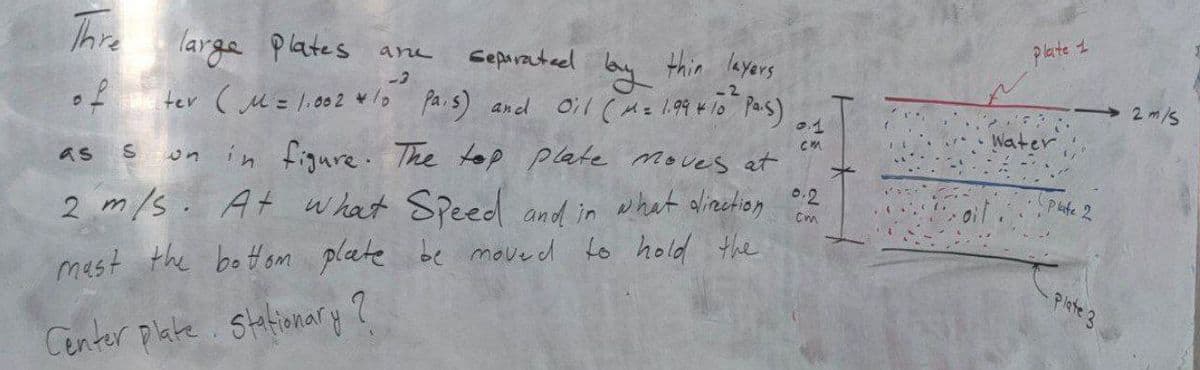 Thre large plates are separated by thin layers
of ter (μ = 1.002 * 10⁻³ Pa.s) and Oil (μ = 1.99 * 10⁻² Pa.s)
as s wn in figure. The top plate moves at
2 m/s. At what Speed and in what direction
must the bottom plate be moved to hold the
Center plate. Stationary?
plate 1
2 m/s
0.1
cm
Water
0.2
cm
oil
Plate 2
Plate 3